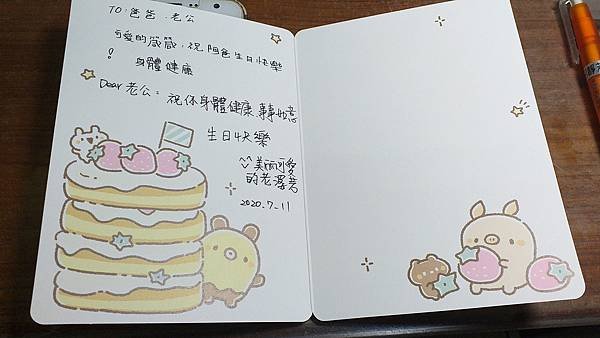 TO:爸爸.老公
可愛的葳葳,祝阿爸生日快樂
! 身體健康
Dear老公:祝你身體健康.事事如意
生日快樂
美麗可愛
的老婆
2020.7.11